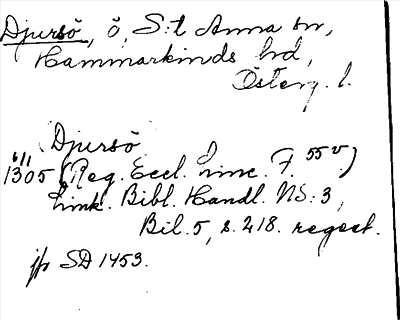 Djursö, ö, S:t Anna sn,
Hammarkinds hd,
Österg. l.
Djursö
6/11
1305 (Reg. Eccl. Linc. F. 55 v)
Link. Bibl. Handl. NS:3,
Bil. 5, s. 218. regest.
jfr SD 1453.